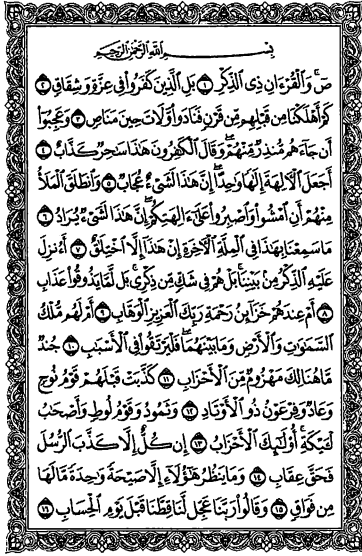 بِسْمِ اللَّهِ الرَّحْمَٰنِ الرَّحِيمِ
صٓ ۚ وَٱلْقُرْءَانِ ذِى ٱلذِّكْرِ ١ بَلِ ٱلَّذِينَ كَفَرُوا۟ فِى عِزَّةٍ وَشِقَاقٍ ٢
كَمْ أَهْلَكْنَا مِن قَبْلِهِم مِّن قَرْنٍ فَنَادَوا۟ وَّلَاتَ حِينَ مَنَاصٍ ٣ وَعَجِبُوٓا۟
أَن جَآءَهُم مُّنذِرٌ مِّنْهُمْ ۖ وَقَالَ ٱلْكَٰفِرُونَ هَٰذَا سَٰحِرٌ كَذَّابٌ ٤
أَجَعَلَ ٱلْءَالِهَةَ إِلَٰهًا وَٰحِدًا ۖ إِنَّ هَٰذَا لَشَىْءٌ عُجَابٌ ٥ وَٱنطَلَقَ ٱلْمَلَأُ
مِنْهُمْ أَنِ ٱمْشُوا۟ وَٱصْبِرُوا۟ عَلَىٰٓ ءَالِهَتِكُمْ ۖ إِنَّ هَٰذَا لَشَىْءٌ يُرَادُ ٦
مَا سَمِعْنَا بِهَٰذَا فِى ٱلْمِلَّةِ ٱلْءَاخِرَةِ إِنْ هَٰذَآ إِلَّا ٱخْتِلَٰقٌ ٧ أَءُنزِلَ
عَلَيْهِ ٱلذِّكْرُ مِنۢ بَيْنِنَا ۚ بَلْ هُمْ فِى شَكٍّ مِّن ذِكْرِى ۖ بَل لَّمَّا يَذُوقُوا۟ عَذَابِ
٨ أَمْ عِندَهُمْ خَزَآئِنُ رَحْمَةِ رَبِّكَ ٱلْعَزِيزِ ٱلْوَهَّابِ ٩ أَمْ لَهُم مُّلْكُ
ٱلسَّمَٰوَٰتِ وَٱلْأَرْضِ وَمَا بَيْنَهُمَا ۖ فَلْيَرْتَقُوا۟ فِى ٱلْأَسْبَٰبِ ١٠ جُندٌ
مَّا هُنَالِكَ مَهْزُومٌ مِّنَ ٱلْأَحْزَابِ ١١ كَذَّبَتْ قَبْلَهُمْ قَوْمُ نُوحٍ
وَعَادٌ وَفِرْعَوْنُ ذُو ٱلْأَوْتَادِ ١٢ وَثَمُودُ وَقَوْمُ لُوطٍ وَأَصْحَٰبُ
لْـَٔيْكَةِ ۚ أُو۟لَٰٓئِكَ ٱلْأَحْزَابُ ١٣ إِن كُلٌّ إِلَّا كَذَّبَ ٱلرُّسُلَ
فَحَقَّ عِقَابِ ١٤ وَمَا يَنظُرُ هَٰٓؤُلَآءِ إِلَّا صَيْحَةً وَٰحِدَةً مَّا لَهَا
مِن فَوَاقٍ ١٥ وَقَالُوا۟ رَبَّنَا عَجِّل لَّنَا قِطَّنَا قَبْلَ يَوْمِ ٱلْحِسَابِ ١٦